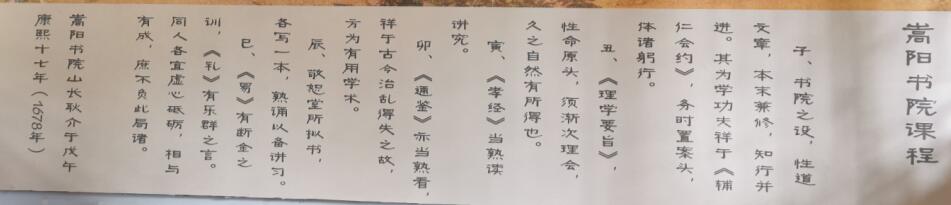 嵩阳书院课程
子、书院之设，性道
文章，本末兼修，知行并
进。其为学功夫祥于《辅
仁会约》，务时置案头，
体诸躬行。
丑、《理学要旨》，
性命原头，须渐次理会，
久之自然有所得也。
寅、《孝经》当熟读
讲究。
卯、《通鉴》亦当熟看，
祥于古今治乱得失之故，
方为有用学术。
辰、敬恕堂所拟书，
各写一本，熟诵以备讲习。
巳、《易》有断金之
训，《礼》有乐群之言。
同人各宜虚心砥砺，相与
有成，庶不负此局诸。
嵩阳书院山长耿介于戊午
康熙十七年（1678年）